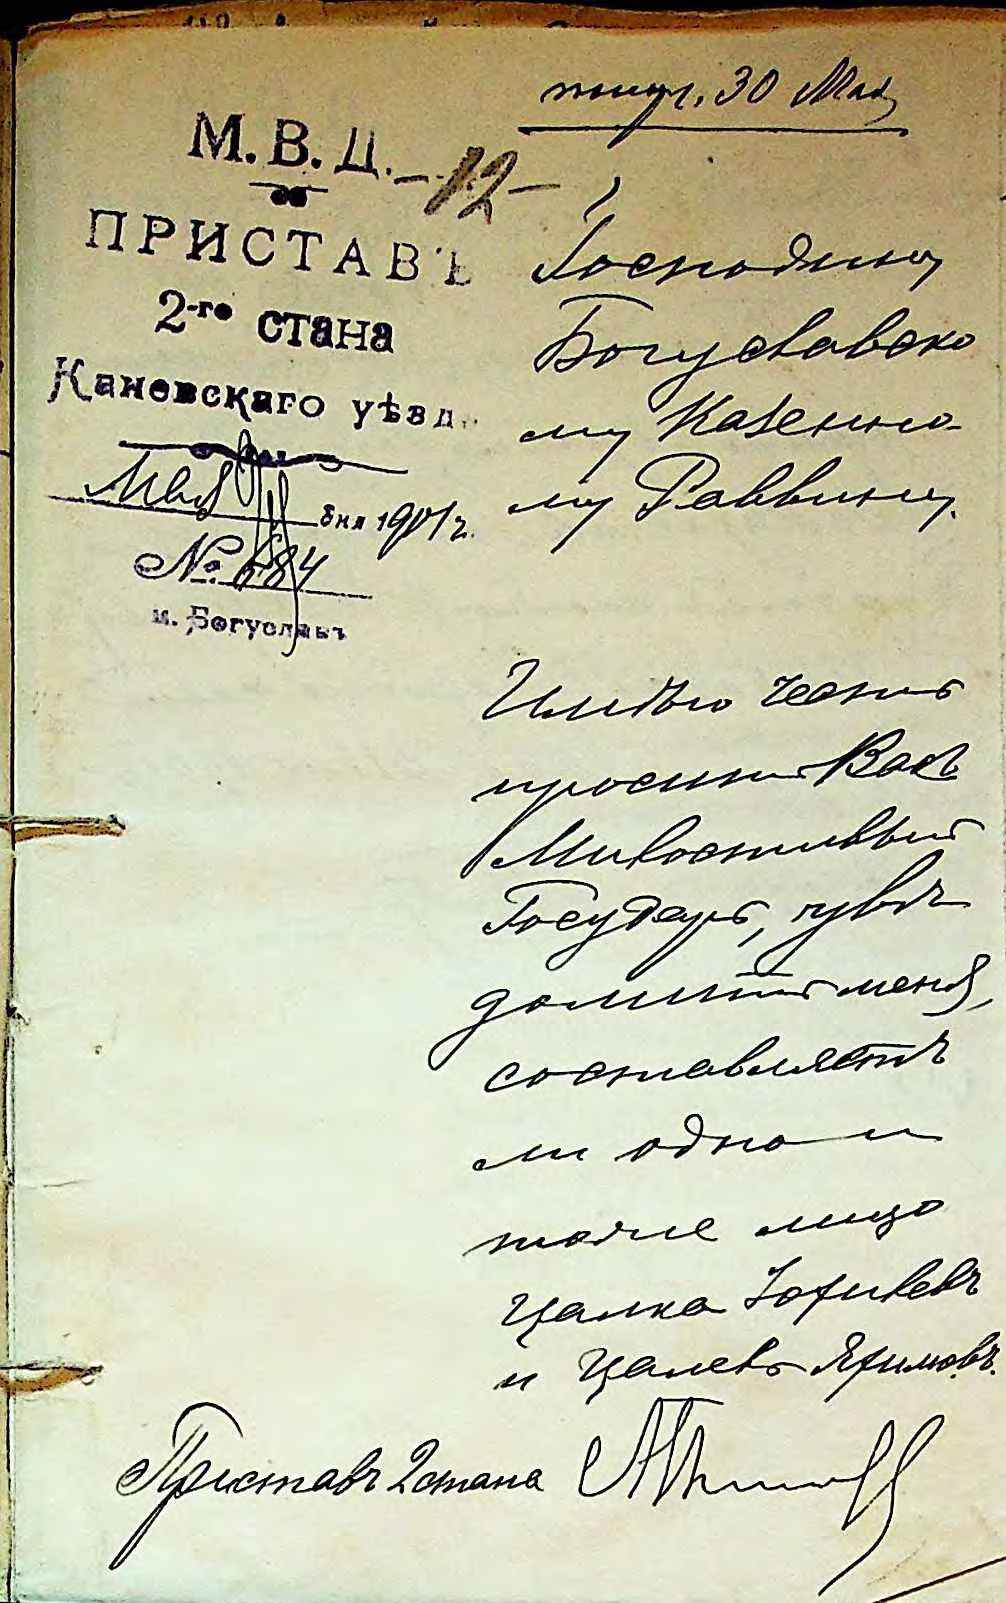 получ. 30 Мая
М. В. Д.
-12-
ПРИСТАВЪ
2-го стана
Каневскаго уѣзд.
Мая дня 1901 г.
№ 684
м. Богуславъ
Господину
Богуславско
му Казенно-
му Раввину.
Имѣю честь
просить Васъ
Милостивый
Государь, увѣ
домить меня,
составляетъ
ли одно и
тоже лицо
Цалка
и Цалевъ Яфимовъ.
Приставъ 2 стана